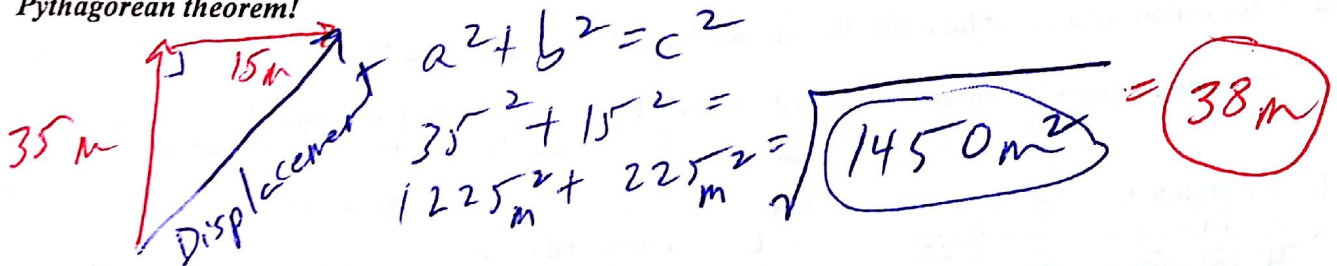 Pythagorean theorem!
15m
35 m
Displacement
a² + b² = c²
35² + 15² =
1225m² + 225m² = √1450m² = 38m